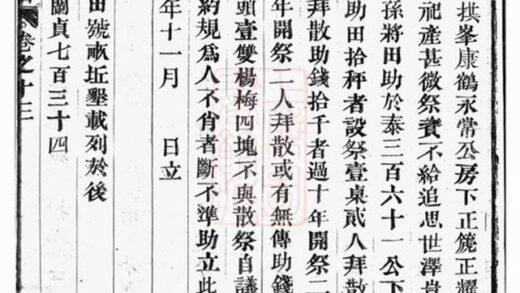 拱峯康鶴永常公房下正箎正耀
祀產甚微祭賚不給追思世澤
孫將田助於泰三百六十一公下
助田拾秤者設祭壹桌貳人拜散
拜散助錢拾千者過十年開祭二
年開祭二人拜散或有無傳助錢
頭壹雙楊梅四塊不與散祭自議
約規為人不肖者斷不準助立此
年十一月 日立
田號畝坵墾載列於後
蘭貞七百三十四
卷之十三